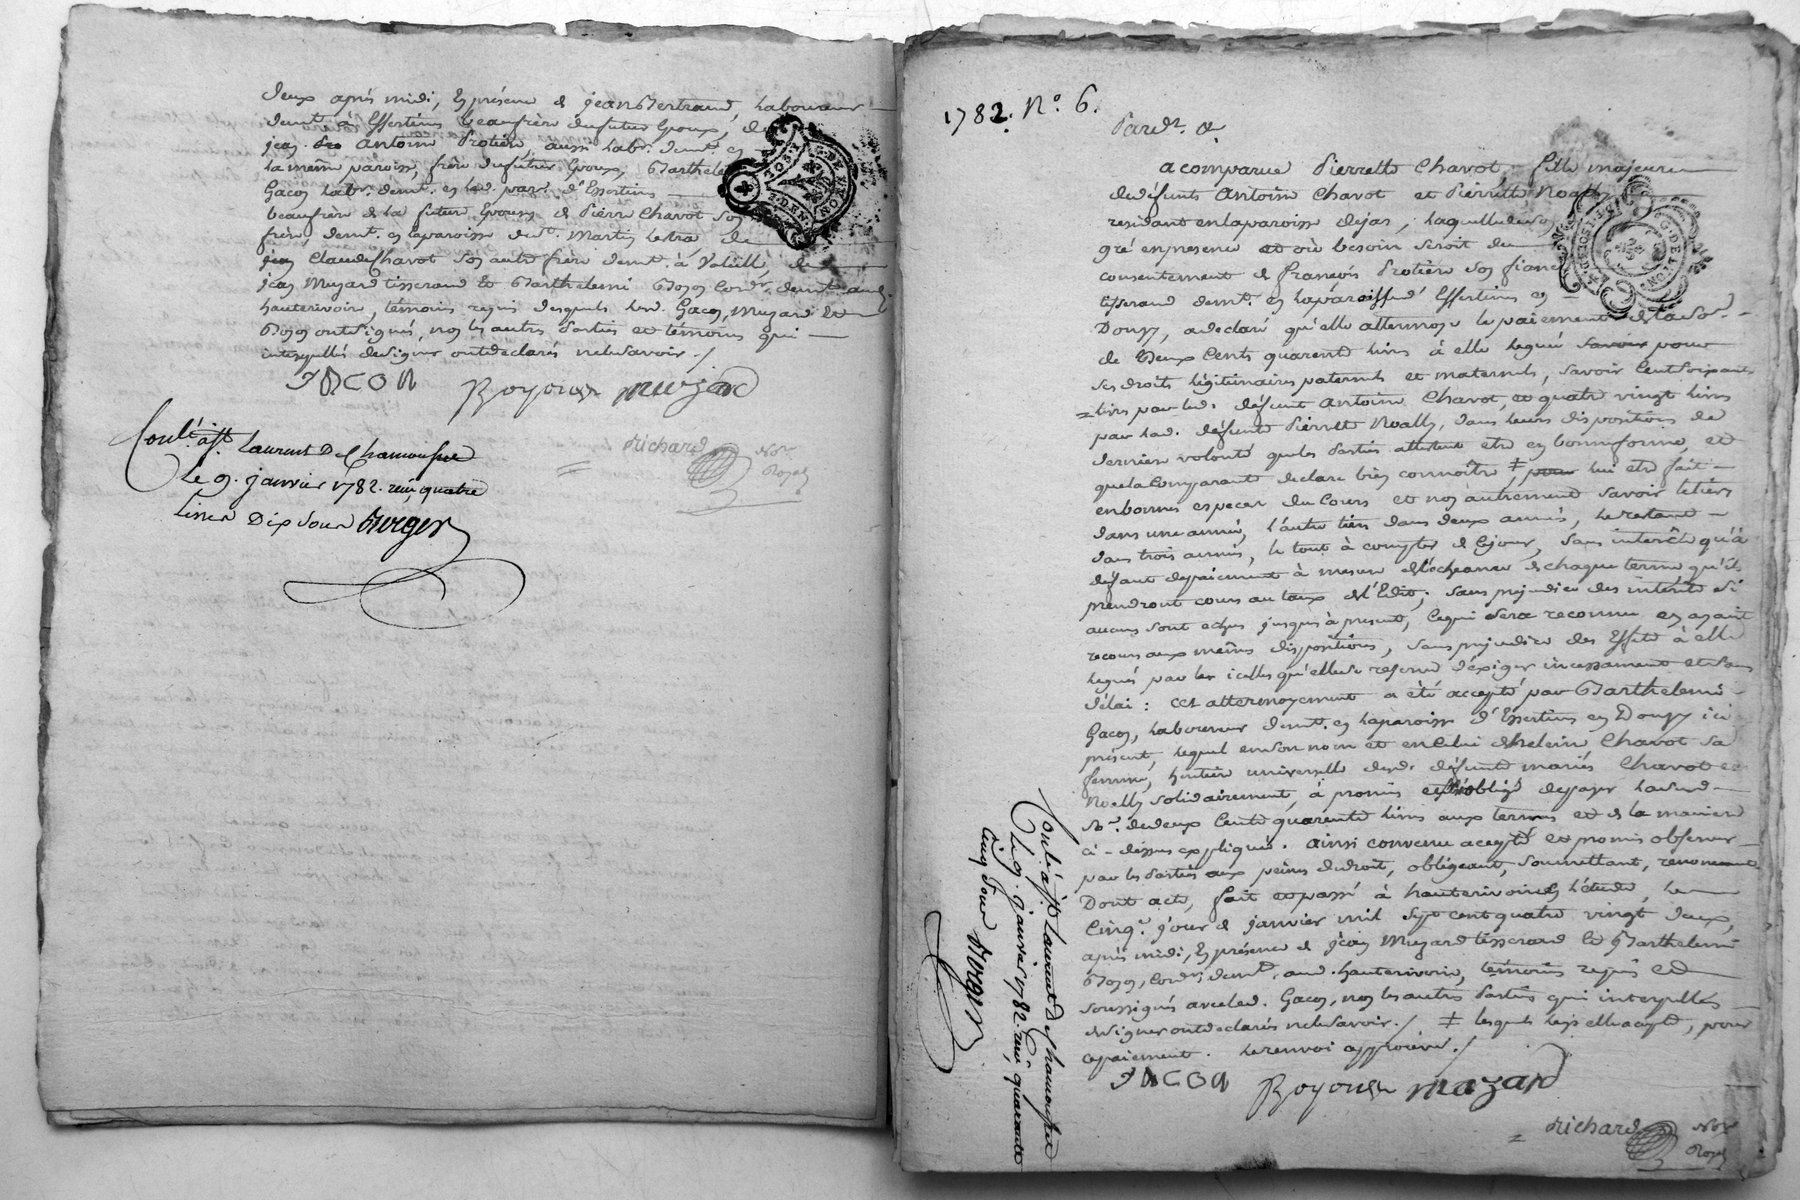 deux après midi, En présence de jean Bertrand, Laboureur
demt. à Essertines beaufrère du futur Epoux, de
jean antoine Protière, aussi labr. demt. en
la même paroisse, frère du futur Epoux, Barthelemi
Gacon labr. demt. en lad. parse. d'Essertines
beaufrère de la future Epouse, de Pierre Chavot son
frère, demt. en la paroisse de St. Martin Lestra, de
Claude Chavot son autre frère demt. à de
jean Muzard tisserand et Barthelemi Boyon Cordr. demt. aud.
hauterivoire, témoins requis desquels led. Gacon, Muzard et
Boyon ont signés, non les autres Parties et témoins qui
interpellés de signer ont declarés ne le savoir ./
GACON Boyon muzard
richard Nore. Royal
Conlé. à St. Laurent De Chamousset
Le 9. janvier 1782. reçu quatre
livres Dix sous Burger
1782. N°. 6.
Pardt. &
a comparue Pierrette Chavot, fille majeure
de défunts Antoine Chavot et Pierrette Noally
residant en la paroisse de jas, laquelle de son
gré en presence et où besoin seroit du
consentement de françois Protière son fiancé
tisserand demt. en la paroisse d'Essertines en
Donzy, a declaré qu'elle attermoye le paiement de la So.e
de Deux Cents quarente livres à elle legué pour
ses droits légitimaires paternels et maternels, savoir Cent soixante
livres par led. défunt Antoine Chavot, et quatre vingt livres
par lad. défunte Pierrette Noally, dans leurs dispositions de
derniere volonté que les Parties attestent etre en bonne forme, et
que la Comparante declare bien connoître ‡ pour lui etre fait
en bonnes especes du Cours et non autrement savoir le tiers
dans une année, l'autre tiers dans deux années, le restant
dans trois années, le tout à compter de Ce jour, sans interêts qu'à
défaut de paiement à mesure de l'écheance de chaque terme qu'ils
prendront cours au taux de l'Edit; sans prejudice des intérêts si
aucuns sont echus jusques à present, Ce qui sera reconnu en ayant
recours aux mêmes dispositions, sans prejudice des Effets à elle
legués par les icelles qu'elle se reserve d'exiger incessament et sans
délai : cet attermoyement a été accepté par Barthelemi
Gacon, laboureur demt. en la paroisse d'Essertines en Donzy ici
présent, lequel en son nom et en Celui de Chavot sa
femme, héritière universelle desd. défunts mariés Chavot et
Noally solidairement, à promis et s'est obligé de payer lad.
So.e de deux Cents quarente livres aux termes et de la maniere
ci-dessus expliqués. ainsi convenu accepté et promis observer
par les Parties aux peines de droit, obligeant, soumettant, renonceant
Dont acte, fait et passé à hauterivoire en l'étude, le
Cinqe. jour de janvier mil sept cent quatre vingt deux,
après midi, En présence de jean Muzard tisserand et Barthelemi
Boyon, Cordr. demts. aud. hauterivoire, témoins requis et
soussignés avec led. Gacon, non les autres Parties qui interpellés
de signer ont declarés ne le savoir ./ ‡ lesquels legs elle accepte, pour
ce paiement. le renvoi approuvé ./
GACON Boyon mazard
richard Nore. Royal
Conlé. à St. Laurent De Chamousset
Le 9. janvier 1782. reçu quarante
Cinq sous Burger